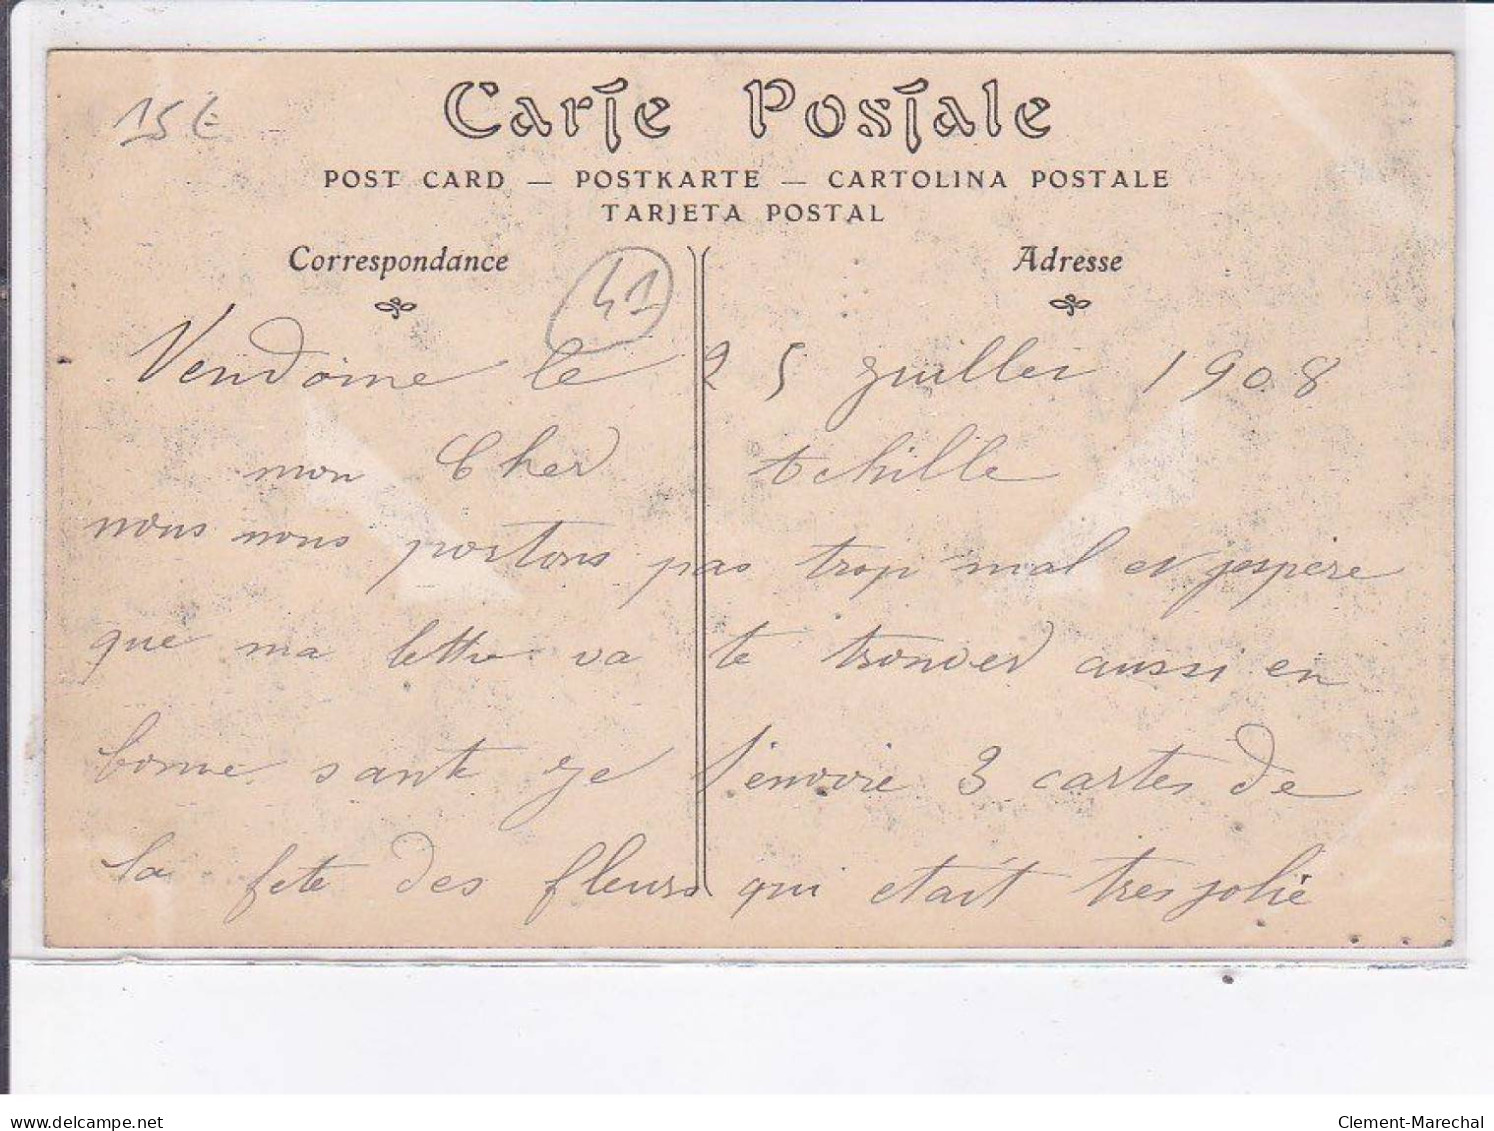 15€
Carte Postale
POST CARD — POSTKARTE — CARTOLINA POSTALE
TARJETA POSTAL
Correspondance
41
Adresse
Vendome le 25 juillet 1908
mon Cher Achille
nous nous portons pas trop mal et jespère
que ma lettre va te trouver aussi en
bonne sante je t'envoie 3 cartes de
la fete des fleurs qui etait tres jolie
delcampe.net
Clement-Marechal